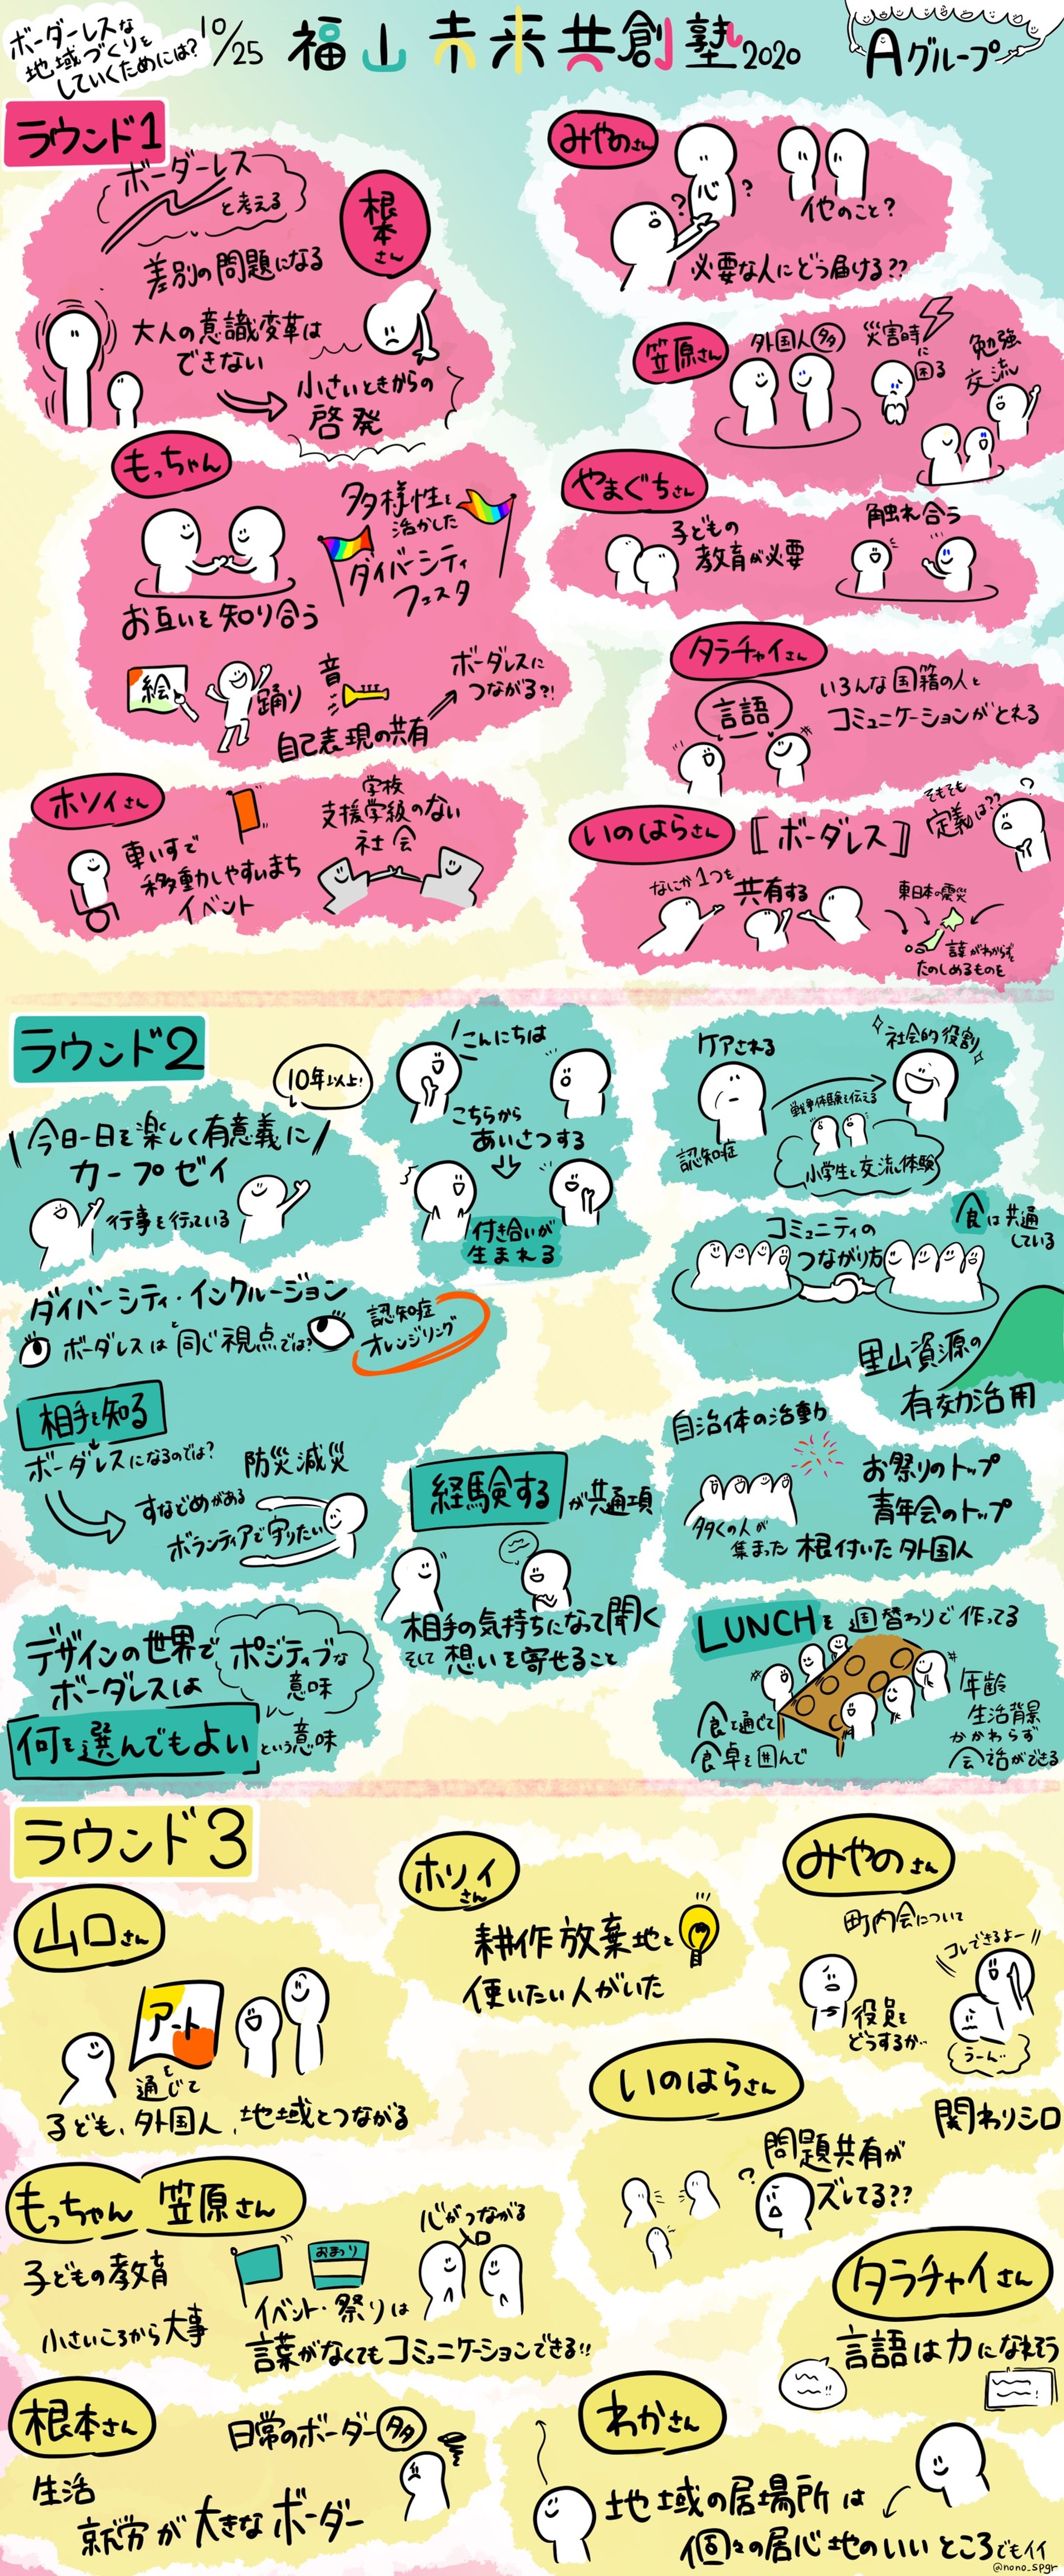 ボーダーレスな
地域づくりを
していくためには?
10/25 福山未来共創塾2020
Aグループ
ラウンド1
ボーダーレス
と考える
根本さん
差別の問題になる
大人の意識変革は
できない
小さいときからの
啓発
もっちゃん
お互いを知り合う
多様性を
活かした
ダイバーシティ
フェスタ
絵
踊り
音
自己表現の共有
ボーダレスに
つながる?!
ホソイさん
車いすで
移動しやすいまち
イベント
学校
支援学級のない
社会
みやのさん
心
? ?
他のこと?
必要な人にどう届ける??
笠原さん
外国人多
災害時
に
困る
勉強
交流
やまぐちさん
子どもの
教育が必要
触れ合う
タラチャイさん
言語
いろんな国籍の人と
コミュニケーションがとれる
いのはらさん
『ボーダレス』
そもそも
定義は??
?
なにか1つを
共有する
東日本の震災
言葉がわからずと
たのしめるものを
ラウンド2
10年以上!
今日一日を楽しく有意義に
カープゼイ
行事を行っている
こんにちは
こちらから
あいさつする
付き合いが
生まれる
ケアされる
認知症
社会的役割
戦争体験を伝える
小学生と交流体験
ダイバーシティ・インクルージョン
ボーダレスはと同じ視点では?
認知症
オレンジリング
相手を知る
ボーダレスになるのでは?
防災減災
すなどめがある
ボランティアで守りたい
コミュニティの
つながり方
食は共通
している
里山資源の
有効活用
経験するが共通項
相手の気持ちになって聞く
そして想いを寄せること
自治体の活動
多くの人が
集まった
お祭りのトップ
青年会のトップ
根付いた外国人
デザインの世界で
ボーダレスは
ポジティブな
意味
何を選んでもよい
という意味
LUNCHを週替わりで作ってる
食を通じて
食卓を囲んで
年齢
生活背景
かかわらず
会話ができる
ラウンド3
山口さん
アート
を
通じて
子ども、外国人、地域とつながる
ホソイ
さん
耕作放棄地を
使いたい人がいた
みやのさん
町内会について
コレできるよー
役員を
どうするか..
うーん..
関わりシロ
いのはらさん
問題共有が
ズレてる??
?
もっちゃん 笠原さん
子どもの教育
小さいころから大事
おまつり
心がつながる
イベント・祭りは
言葉がなくてもコミュニケーションできる!!
タラチャイさん
言語は力になれそう
根本さん
日常のボーダー多
生活
就労が大きなボーダー
わかさん
地域の居場所は
個々の居心地のいいところでもイイ
@nono_spgr